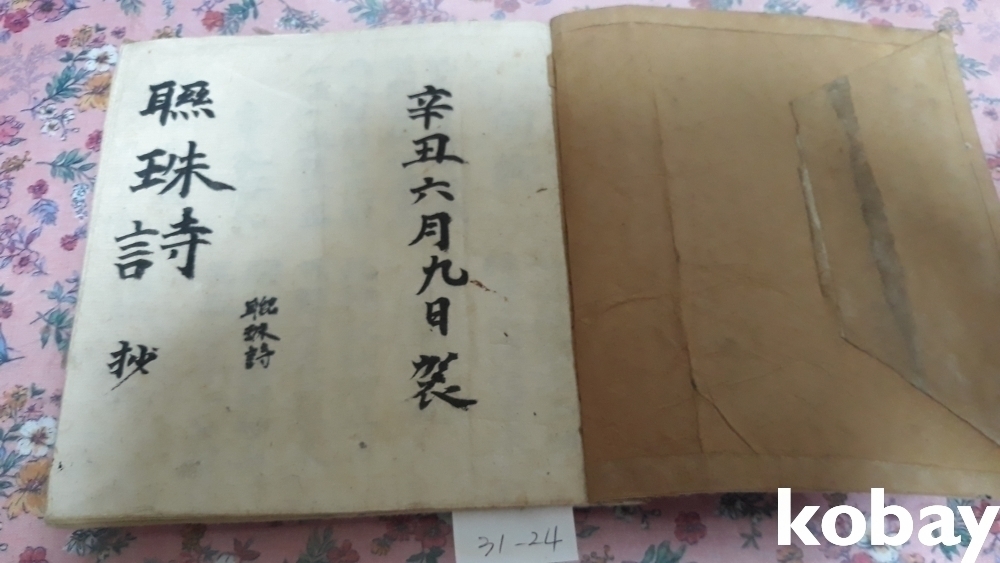 辛丑六月九日
聯珠詩
聯珠詩 抄
31-24
kobay